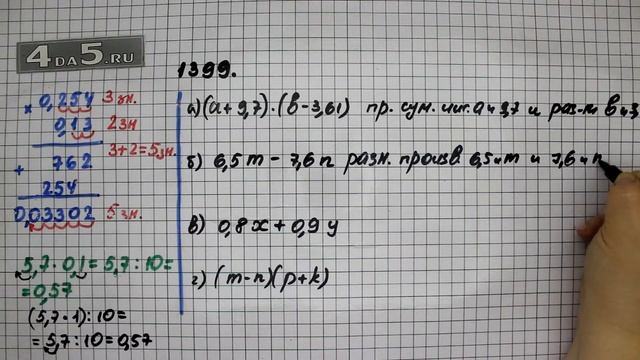 4DA5.RU
1399.
× 0,254 3 зн.
0,13 2 зн
3+2=5 зн.
+ 762
254
0,03302 5 зн.
5,7·0,1=5,7:10=
=0,57
(5,7·1):10=
=5,7:10=0,57
а) (a+9,7)·(b-3,61) пр. сум. чис. a и 9,7 и раз-ти b и 3,
б) 6,5m - 7,6n разн. произв 6,5 и m и 7,6 и n
в) 0,8x + 0,9y
г) (m-n)(p+k)